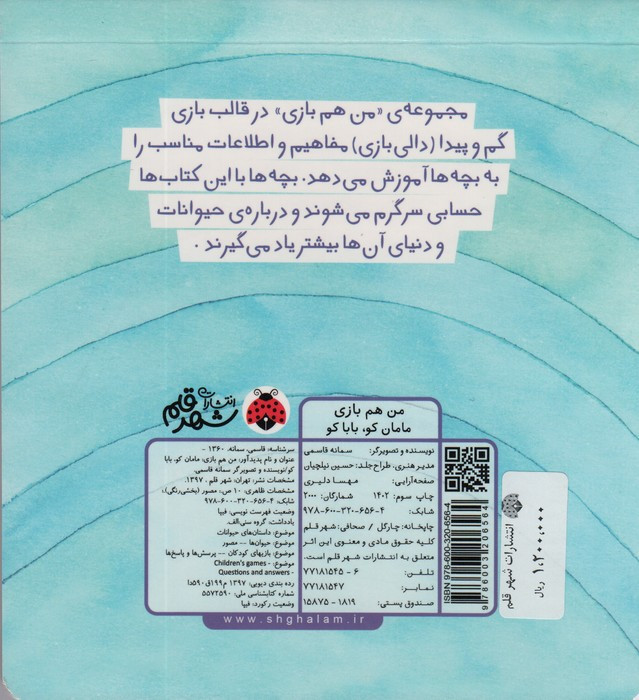 مجموعه‌ی «من هم بازی» در قالب بازی
گم و پیدا (دالی بازی) مفاهیم و اطلاعات مناسب را
به بچه‌ها آموزش می‌دهد. بچه‌ها با این کتاب‌ها
حسابی سرگرم می‌شوند و درباره‌ی حیوانات
و دنیای آن‌ها بیشتر یاد می‌گیرند.
انتشارات
شهر قلم
من هم بازی
مامان کو، بابا کو
نویسنده و تصویرگر: سمانه قاسمی
مدیر هنری، طراح جلد: حسین نیلچیان
صفحه‌آرایی: مهسا دلیری
چاپ سوم: ۱۴۰۲ شمارگان: ۲۰۰۰
شابک: ۴-۶۵۶-۳۲۰-۶۰۰-۹۷۸
چاپخانه: چارگل / صحافی: شهر قلم
کلیه حقوق مادی و معنوی این اثر
متعلق به انتشارات شهر قلم است.
تلفن: ۶ - ۷۷۱۸۱۵۴۵
نمابر: ۷۷۱۸۱۵۴۷
صندوق پستی: ۱۸۱۹ - ۱۵۸۷۵
سرشناسه: قاسمی، سمانه، ۱۳۶۰ -
عنوان و نام پدیدآور: من هم بازی، مامان کو، بابا
کو/نویسنده و تصویرگر سمانه قاسمی.
مشخصات نشر: تهران، شهر قلم، ۱۳۹۷.
مشخصات ظاهری: ۱۰ ص: مصور (بخشی رنگی)؛
شابک: ۴-۶۵۶-۳۲۰-۶۰۰-۹۷۸
وضعیت فهرست نویسی: فیپا
یادداشت: گروه سنی:الف.
موضوع: داستان‌های حیوانات
موضوع: حیوان‌ها -- مصور
موضوع: بازیهای کودکان -- پرسش‌ها و پاسخ‌ها
موضوع: Children's games -
Questions and answers -
رده بندی دیویی: ۱۳۹۷ م۱۹۹ق ۵۹۰
شماره کتابشناسی ملی: ۵۵۷۲۵۹۰
وضعیت رکورد: فیپا
www.shghalam.ir
ISBN 978-600-320-656-4
9786003206564
انتشارات شهر قلم
۱,۲۰۰,۰۰۰ ریال